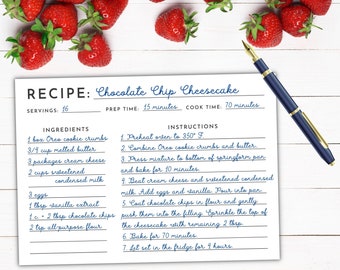 RECIPE: Chocolate Chip Cheesecake
SERVINGS: 16 PREP TIME: 15 minutes COOK TIME: 70 minutes
INGREDIENTS
1 box Oreo cookie crumbs
3/4 cup melted butter
3 packages cream cheese
2 cups sweetened
condensed milk
3 eggs
1 tbsp vanilla extract
1 c. + 2 tbsp chocolate chips
2 tsp all-purpose flour
INSTRUCTIONS
1. Preheat oven to 350° F.
2. Combine Oreo cookie crumbs and butter.
3. Press mixture to bottom of springform pan
and bake for 10 minutes.
4. Beat cream cheese and sweetened condensed
milk. Add eggs and vanilla. Pour into pan.
5. Coat chocolate chips in flour and gently
push them into the filling. Sprinkle the top of
the cheesecake with remaining 2 tbsp.
6. Bake for 70 minutes.
7. Let set in the fridge for 4 hours.